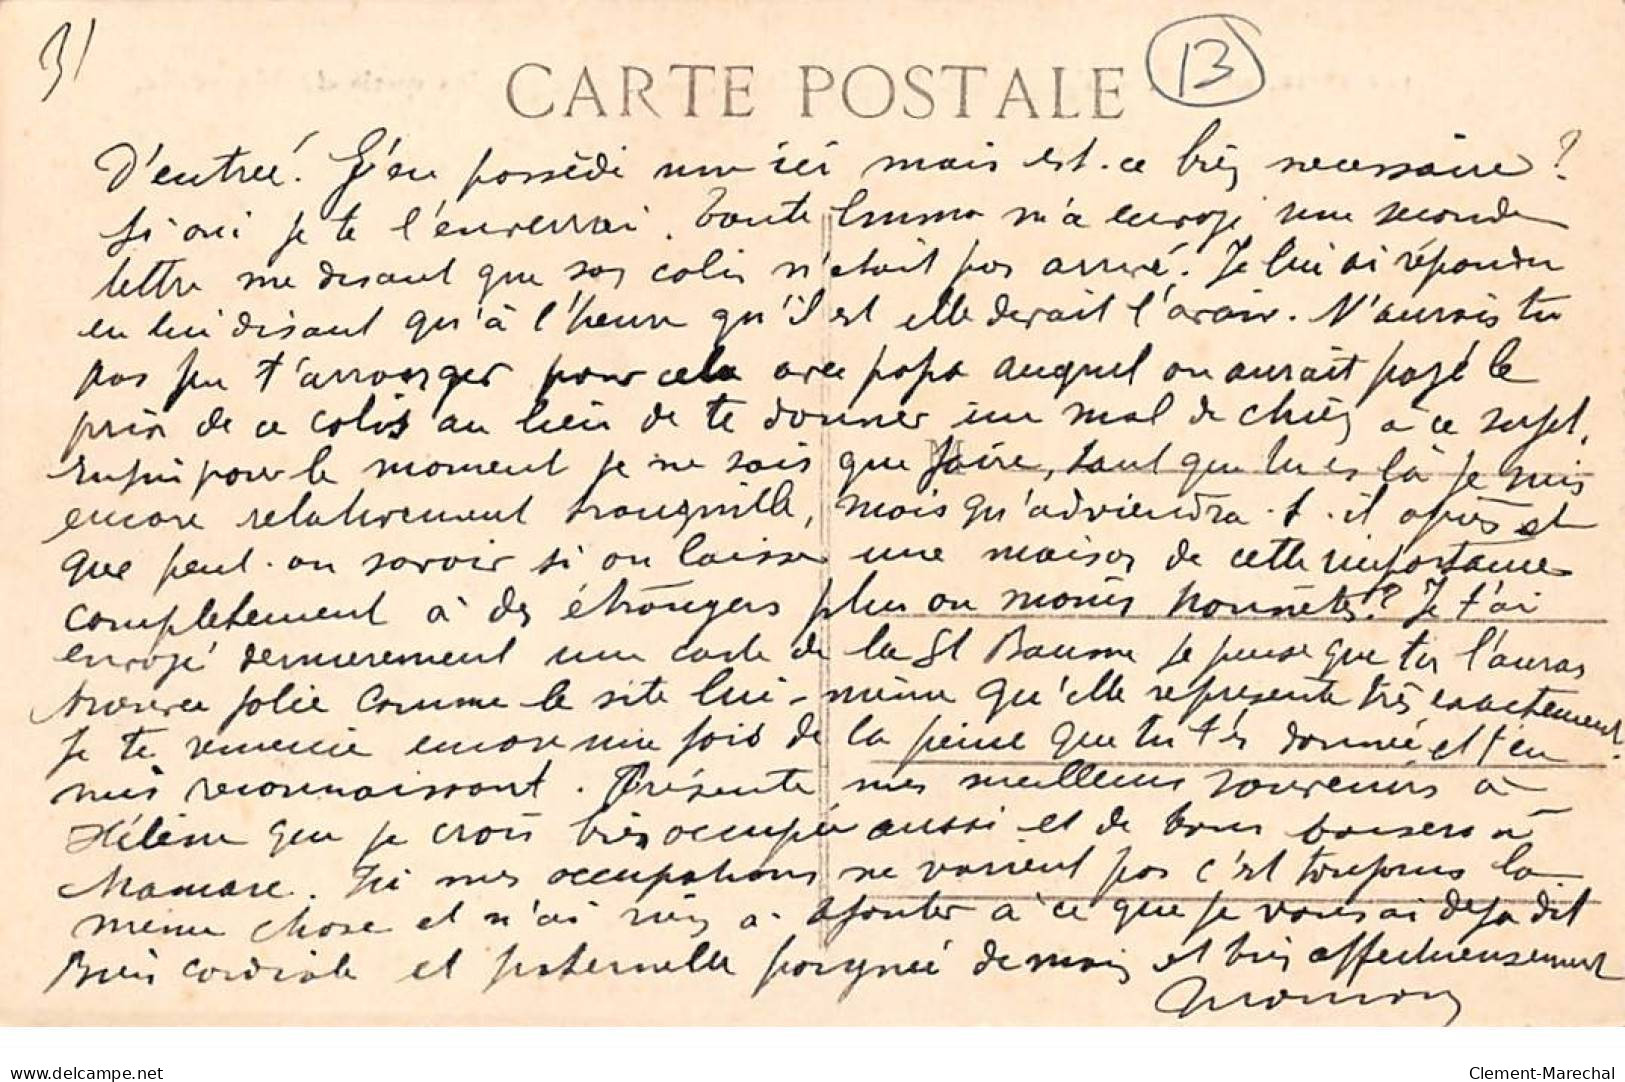 3/
CARTE POSTALE
13
D'entrée. J'en possède une ici mais est-ce bien necessaire?
Si oui je te l'enverrai. Tante Emma m'a envoyé une seconde
lettre me disant que son colis n'était pas arrivé. Je lui ai répondu
en lui disant qu'à l'heure qu'il est elle devait l'avoir. N'aurais tu
pas pu t'arranger pour cela avec papa auquel on aurait payé le
prix de ce colis au lieu de te donner un mal de chien à ce sujet.
Enfin pour le moment je ne sais que faire, tant que tu es là je suis
encore relativement tranquille, mais qu'adviendra-t-il après et
que peut-on savoir si on laisse une maison de cette importance
completement à des étrangers plus ou moins honnêtes? Je t'ai
envoyé dernierement une carte de la St Baume je pense que tu l'auras
trouvée jolie comme le site lui-même qu'elle represente très exactement.
Je te remercie encore une fois de la peine que tu t'es donnée et t'en
suis reconnaissant. Présente mes meilleurs souvenirs à
Hélène que je crois bien occupée aussi et de bons baisers à
Ici mes occupations ne varient pas c'est toujours la
même chose et n'ai rien à ajouter à ce que je vous ai deja dit
Bien cordiale et fraternelle poignée de main et bien affectueusement
delcampe.net
Clement-Marechal